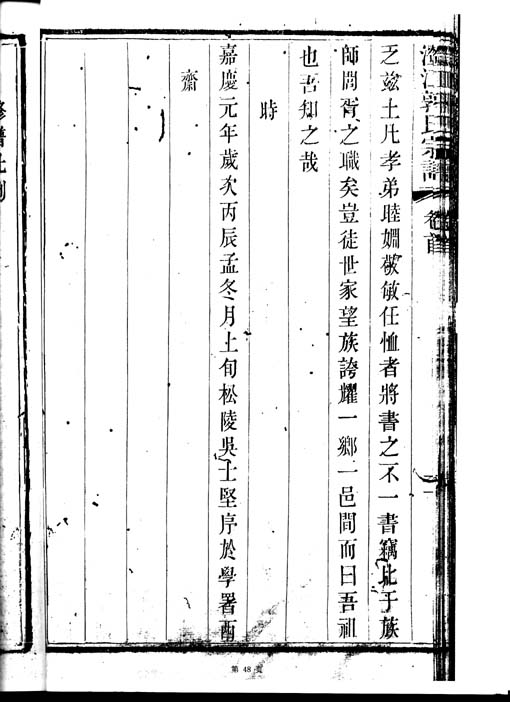 郭氏宗譜 卷首
乏兹土凡孝弟睦婣敬敏任恤者將書之不一書竊比于族
師閭胥之職矣豈徒世家望族誇耀一鄉一邑間而曰吾祖
也吾知之哉
時
嘉慶元年歲次丙辰孟冬月上旬松陵吳士堅序於學署西
齋
第 48 頁